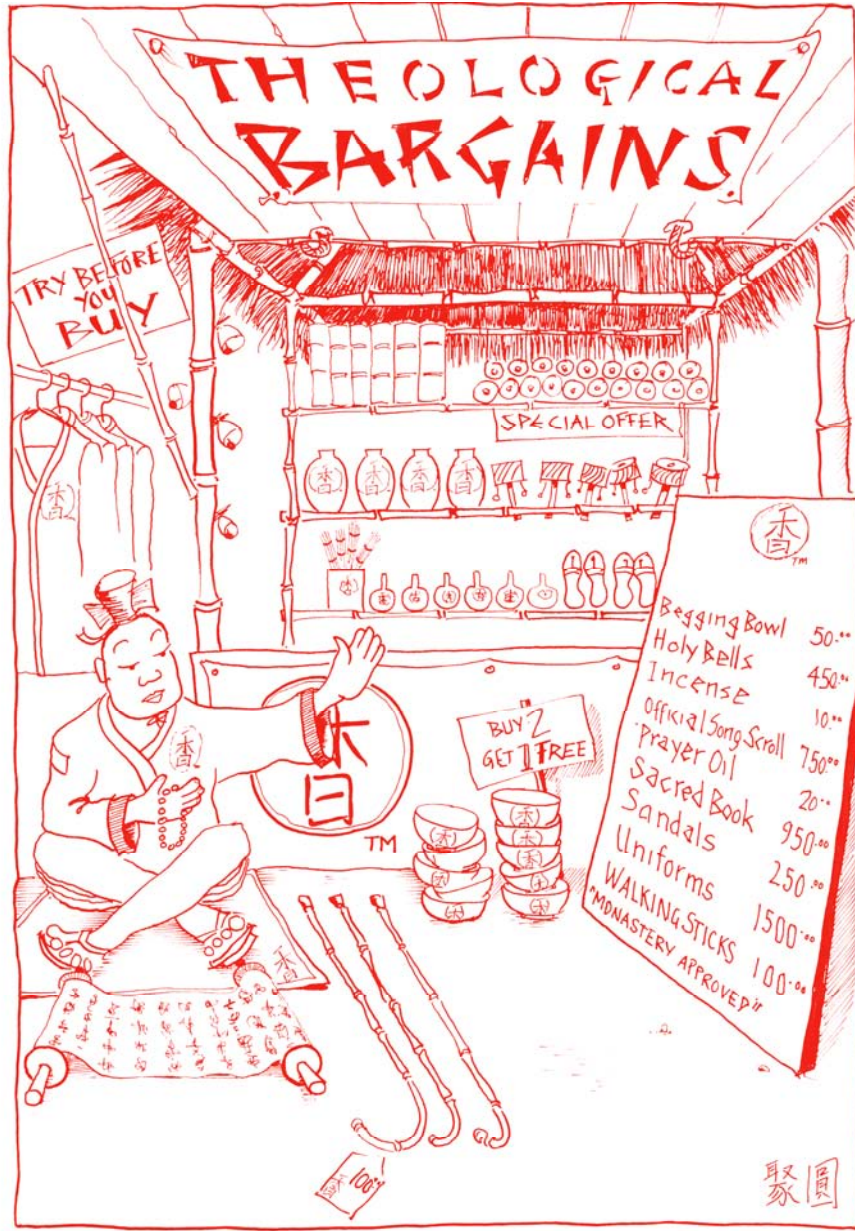 THEOLOGICAL
BARGAINS
TRY BEFORE
YOU
BUY
SPECIAL OFFER
香
香 香 香 香
香
TM
Begging Bowl 50.00
Holy Bells 450.00
Incense 10.00
Official Song Scroll 750.00
Prayer Oil 20.00
Sacred Book 950.00
Sandals 250.00
Uniforms 1500.00
WALKING STICKS 100.00
"MONASTERY APPROVED"
香
香
TM
BUY 2
GET 1 FREE
香
香
香
香
香
香 100.00
聚圓